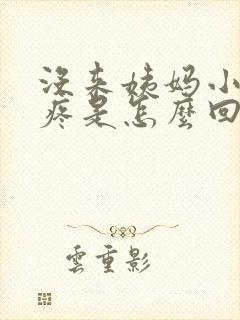 没来姨妈小
疼是怎麼回
雲重影